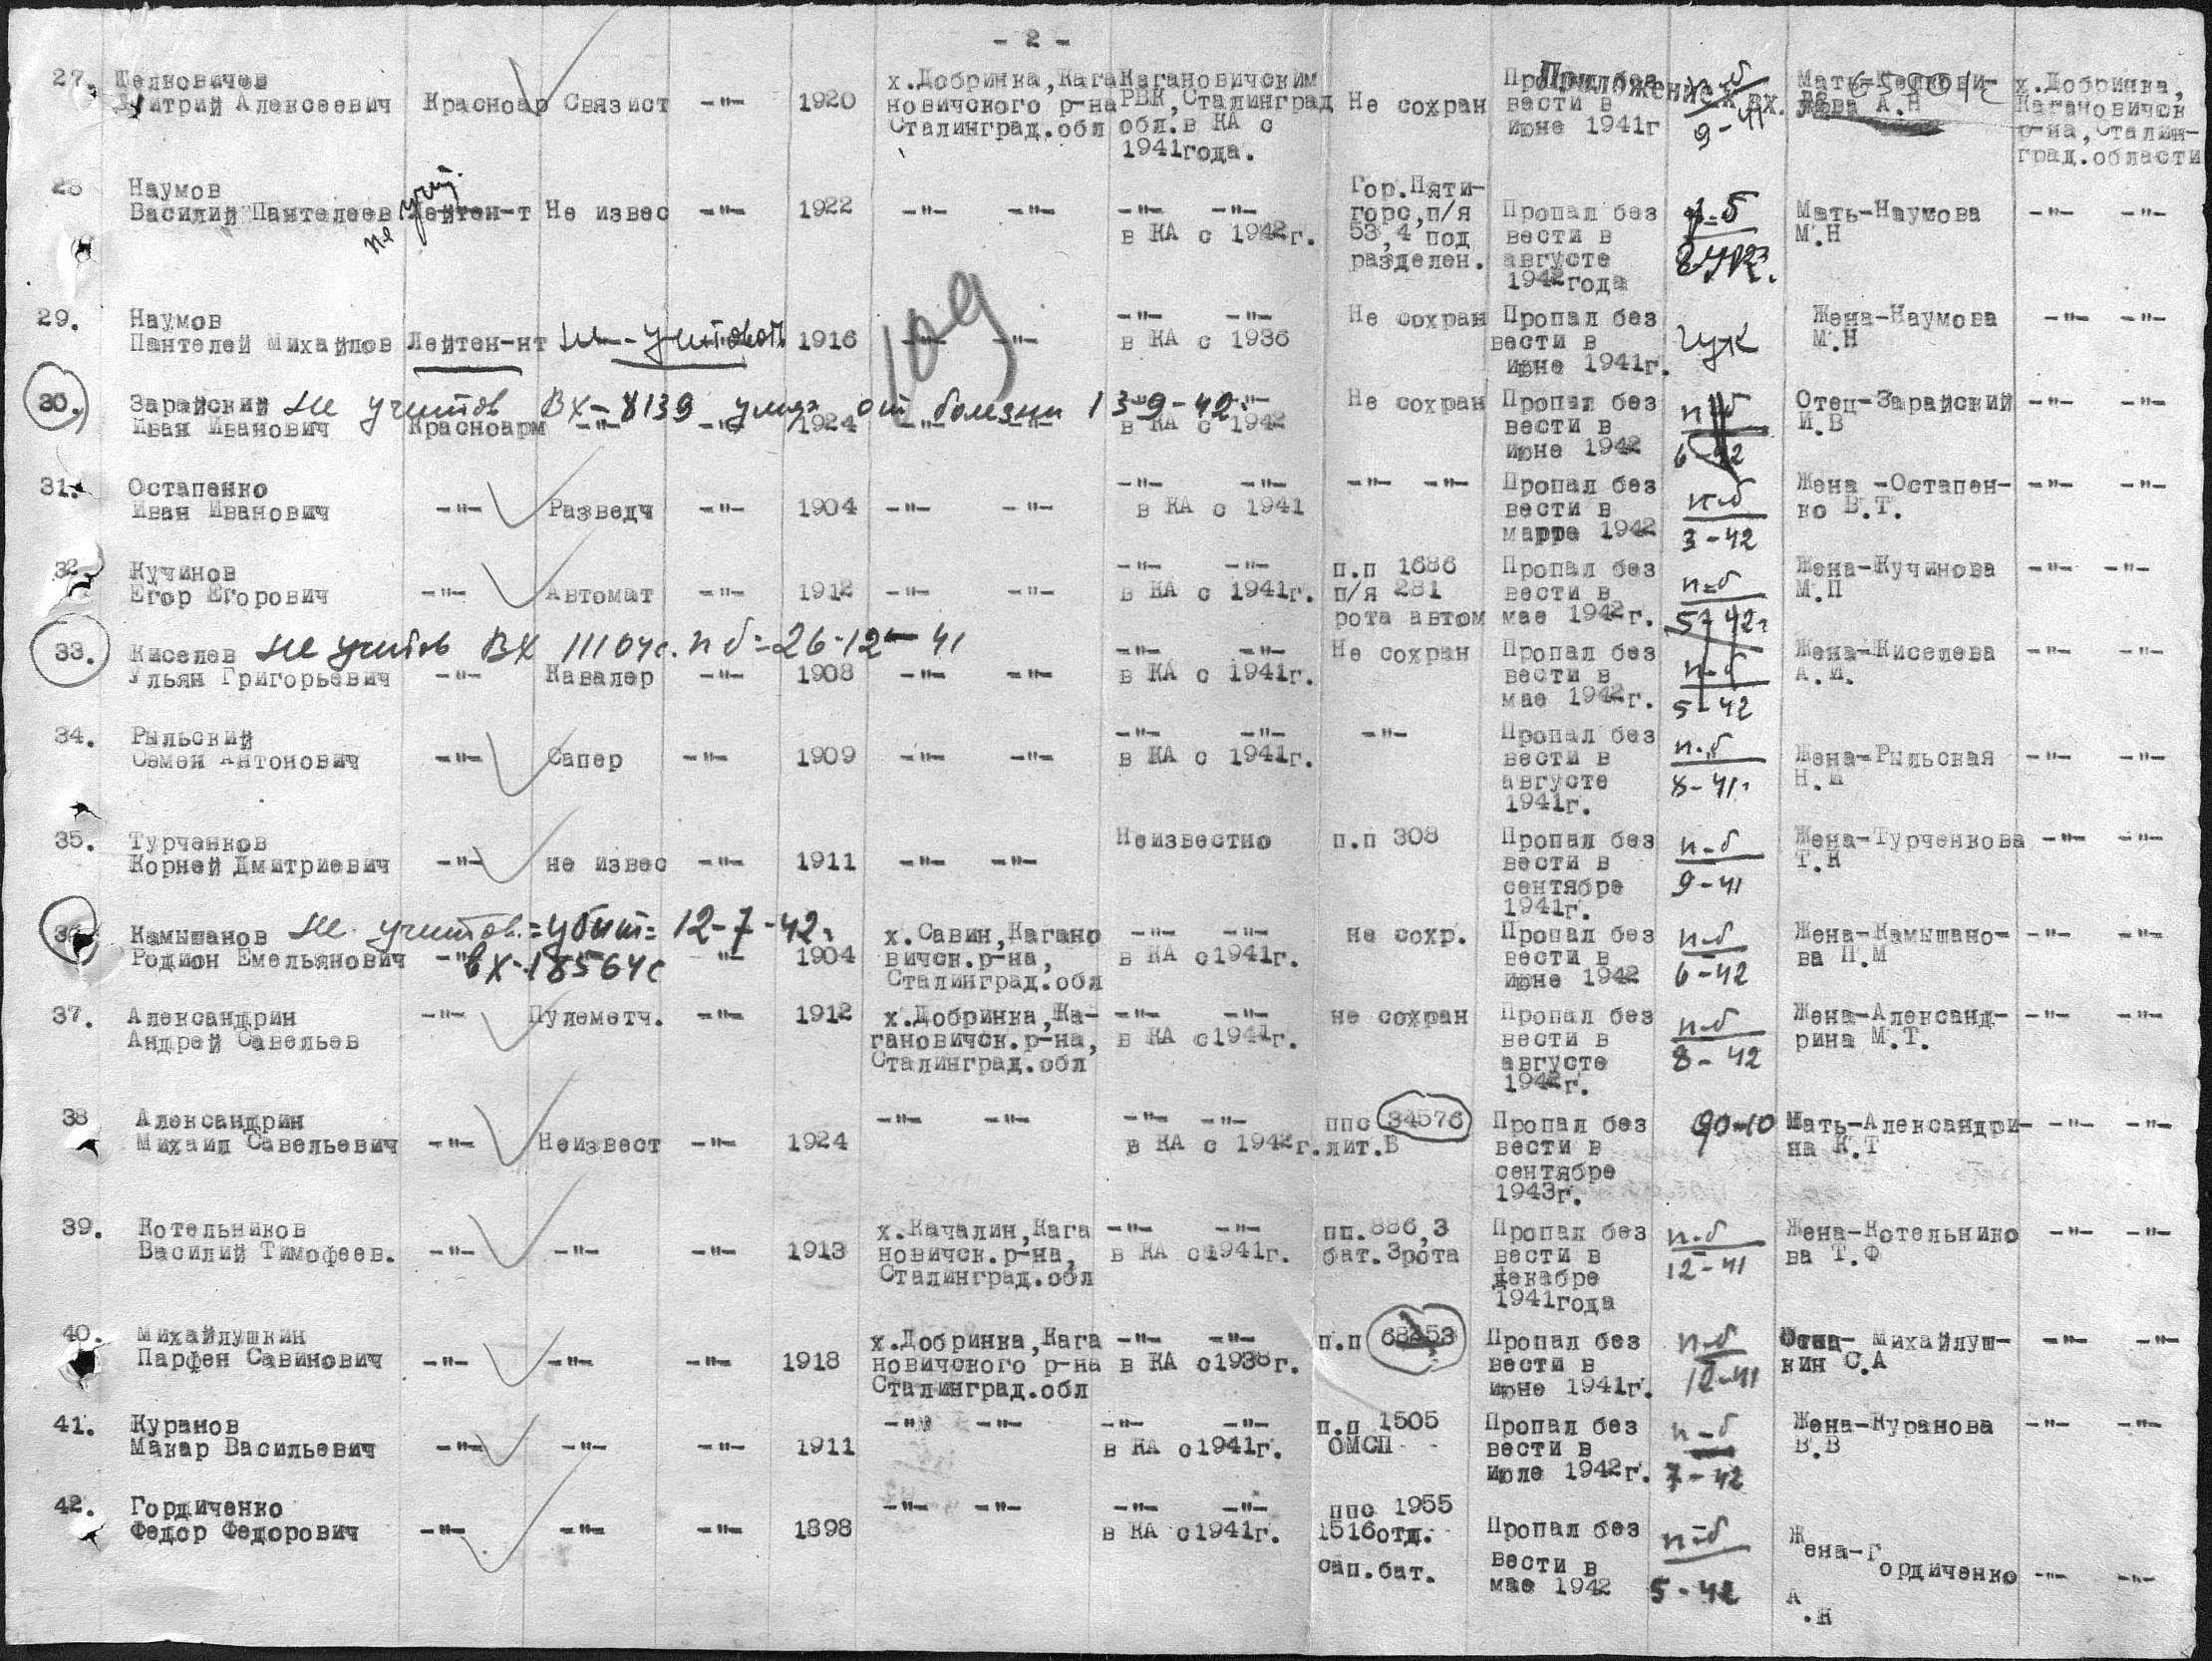 - 2 -
27. Шелковичев х.Добринка,Кага Кагановичским Пропал без Приложение к вх. п-б Мать-Шелкови- х.Добринка,
Дмитрий Алексеевич Красноар Связист -"- 1920 новичского р-на РВК,Сталинград Не сохран вести в 9-41 чева А.Н Кагановичск
Сталинград.обл обл.в КА с июне 1941г р-на,Сталин-
1941года. град.области
28 Наумов не учит. Гор.Пяти-
Василий Пантелеев Лейтен-т Не извес -"- 1922 -"- -"- -"- -"- горс,п/я Пропал без п-б Мать-Наумова -"- -"-
в КА с 1942г. 53,4 под вести в М.Н
разделен. августе
1942года
29. Наумов -"- -"- Не сохран Пропал без Жена-Наумова -"- -"-
Пантелей Михайлов Лейтен-нт не учитовать 1916 -"- -"- в КА с 1936 вести в М.Н
109 июне 1941г.
30. Зарайский не учитов ВХ-8139 умер от болезни 13-9-42. Не сохран Пропал без п-б Отец-Зарайский -"- -"-
Иван Иванович Красноарм -"- -"- 1924 -"- -"- в КА с 1942 вести в 6-42 И.В
июне 1942
31. Остапенко -"- -"- -"- -"- Пропал без п-б Жена -Остапен- -"- -"-
Иван Иванович -"- Разведч -"- 1904 -"- -"- в КА с 1941 вести в 3-42 ко В.Т.
марте 1942
32. Кучинов -"- -"- п.п 1686 Пропал без п-б Жена-Кучинова -"- -"-
Егор Егорович -"- Автомат -"- 1912 -"- -"- в КА с 1941г. п/я 281 вести в 5-42г М.П
рота автом мае 1942г.
33. Киселев не учитов ВХ 11104с. п б-26-12-41 -"- -"- Не сохран Пропал без п-б Жена-Киселева -"- -"-
Ульян Григорьевич -"- Кавалер -"- 1908 -"- -"- в КА с 1941г. вести в 5-42 А.И.
мае 1942г.
34. Рыльский -"- -"- -"- Пропал без п-б
Семен Антонович -"- Сапер -"- 1909 -"- -"- в КА с 1941г. вести в 8-41г Жена-Рыльская -"- -"-
августе Н.М
1941г.
35. Турченков Неизвестно п.п 308 Пропал без п-б Жена-Турченкова -"- -"-
Корней Дмитриевич -"- не извес -"- 1911 -"- -"- вести в 9-41 Т.Н
сентябре
1941г.
36 Камышанов не учитов.=убит= 12-7-42. х.Савин,Кагано -"- -"- не сохр. Пропал без п-б Жена-Камышано- -"- -"-
Родион Емельянович -"- вх-18564с -"- 1904 вичск.р-на, в КА с1941г. вести в 6-42 ва П.М
Сталинград.обл июне 1942
37. Александрин -"- Пулеметч. -"- 1912 х.Добринка,Ка- -"- -"- не сохран Пропал без п-б Жена-Александ- -"- -"-
Андрей Савельев гановичск.р-на, в КА с1941г. вести в 8-42 рина М.Т.
Сталинград.обл августе
1942г.
38 Александрин -"- -"- -"- -"- ппс 34576 Пропал без 90-10 Мать-Александри- -"- -"-
Михаил Савельевич -"- Неизвест -"- 1924 в КА с 1942г. лит.В вести в на К.Т
сентябре
1943г.
39. Котельников х.Качалин,Кага -"- -"- пп.886,3 Пропал без п-б Жена-Котельнико -"- -"-
Василий Тимофеев. -"- -"- -"- 1913 новичск.р-на, в КА с1941г. бат.3рота вести в 12-41 ва Т.Ф
Сталинград.обл декабре
1941года
40. Михайлушкин х.Добринка,Кага -"- -"- п.п 68453 Пропал без п-б Отец- Михайлуш- -"- -"-
Парфен Савинович -"- -"- -"- 1918 новичского р-на в КА с1938г. вести в 12-41 кин С.А
Сталинград.обл июне 1941г.
41. Куранов -"- -"- -"- -"- п.п 1505 Пропал без п-б Жена-Куранова -"- -"-
Макар Васильевич -"- -"- -"- 1911 в КА с1941г. ОМСП вести в 7-42 В.В
июле 1942г.
42. Гордиченко -"- -"- -"- -"- ппс 1955
Федор Федорович -"- -"- -"- 1898 в КА с1941г. 1516отд. Пропал без п-б Жена-Гордиченко -"- -"-
сап.бат. вести в 5-42 А.Н
мае 1942